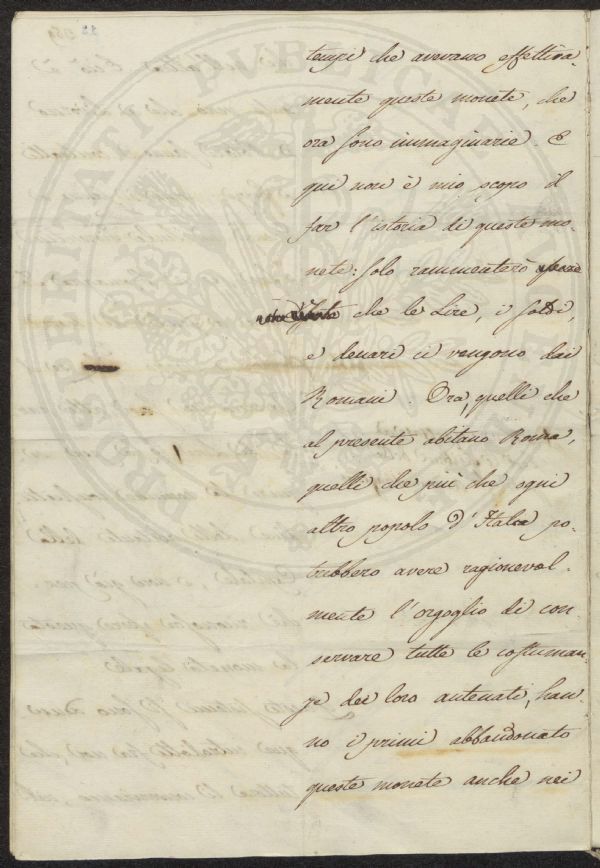 tempi che avevano effettiva-
mente queste monete, che
ora sono immaginarie. E
qui non è mio scopo il
far l'istoria di queste mo-
nete: solo rammenterò
che le Lire, i soldi,
e denari ci vengono dai
Romani. Ora, quelli che
al presente abitano Roma,
quelli che più che ogni
altro popolo d'Italia po-
trebbero avere ragioneval-
mente l'orgoglio di con-
servare tutte le costuman-
ze dei loro antenati, han-
no i primi abbandonato
queste monete anche nei